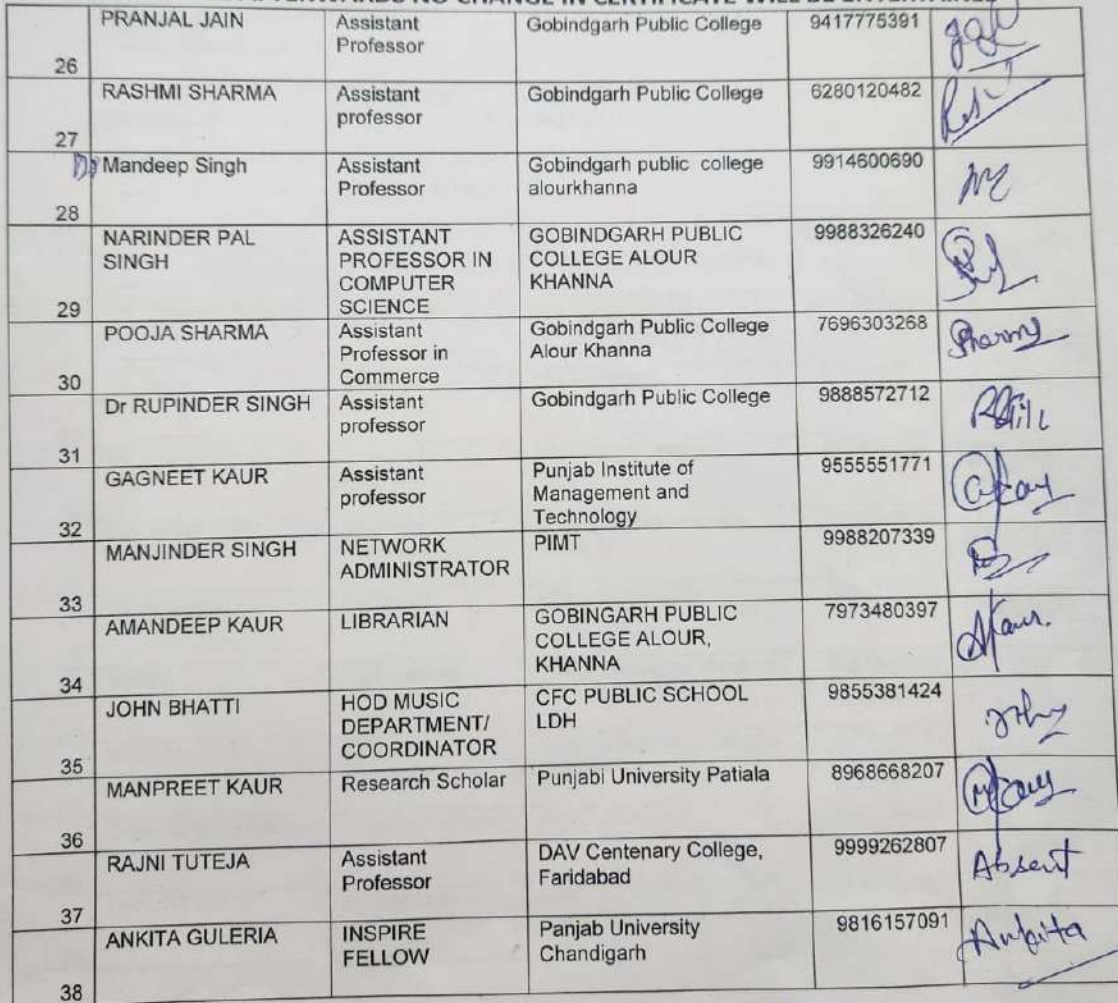 AFTERWARDS NO CHANGE IN CERTIFICATE WILL BE ENTERTAINED
26 PRANJAL JAIN Assistant Professor Gobindgarh Public College 9417775391
27 RASHMI SHARMA Assistant professor Gobindgarh Public College 6280120482
28 Dr Mandeep Singh Assistant Professor Gobindgarh public college alourkhanna 9914600690
29 NARINDER PAL SINGH ASSISTANT PROFESSOR IN COMPUTER SCIENCE GOBINDGARH PUBLIC COLLEGE ALOUR KHANNA 9988326240
30 POOJA SHARMA Assistant Professor in Commerce Gobindgarh Public College Alour Khanna 7696303268 Sharma
31 Dr RUPINDER SINGH Assistant professor Gobindgarh Public College 9888572712
32 GAGNEET KAUR Assistant professor Punjab Institute of Management and Technology 9555551771
33 MANJINDER SINGH NETWORK ADMINISTRATOR PIMT 9988207339
34 AMANDEEP KAUR LIBRARIAN GOBINGARH PUBLIC COLLEGE ALOUR, KHANNA 7973480397 AKaur.
35 JOHN BHATTI HOD MUSIC DEPARTMENT/ COORDINATOR CFC PUBLIC SCHOOL LDH 9855381424
36 MANPREET KAUR Research Scholar Punjabi University Patiala 8968668207
37 RAJNI TUTEJA Assistant Professor DAV Centenary College, Faridabad 9999262807 Absent
38 ANKITA GULERIA INSPIRE FELLOW Panjab University Chandigarh 9816157091 Ankita